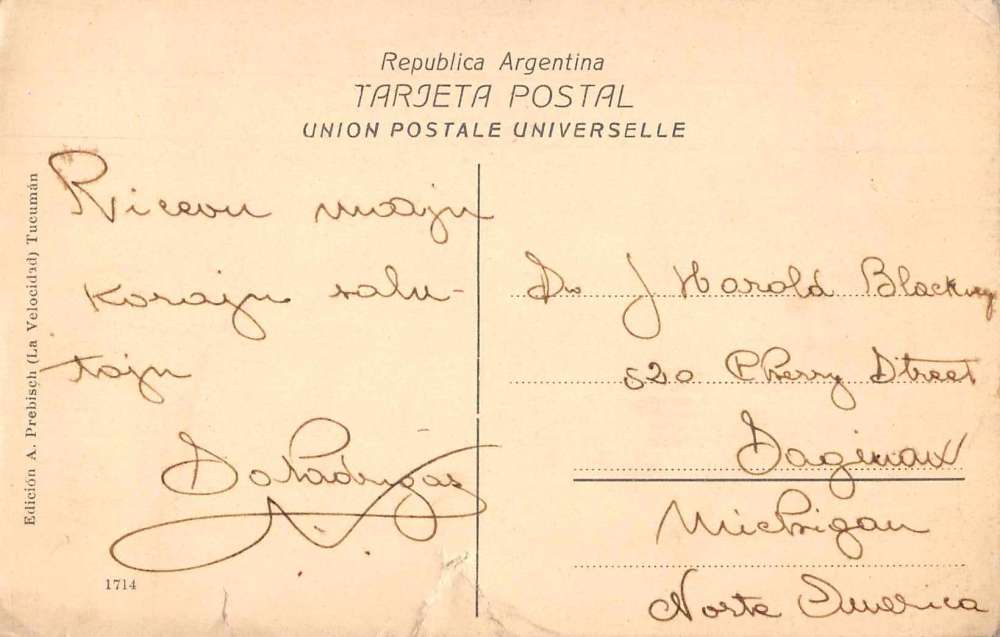 Republica Argentina
TARJETA POSTAL
UNION POSTALE UNIVERSELLE
Edición A. Prebisch (La Velocidad) Tucumán
Ricevu miajn
korajn salu-
tajn
1714
Dro J Harold Blackney
520 Cherry Street
Saginaw
Michigan
Norte America